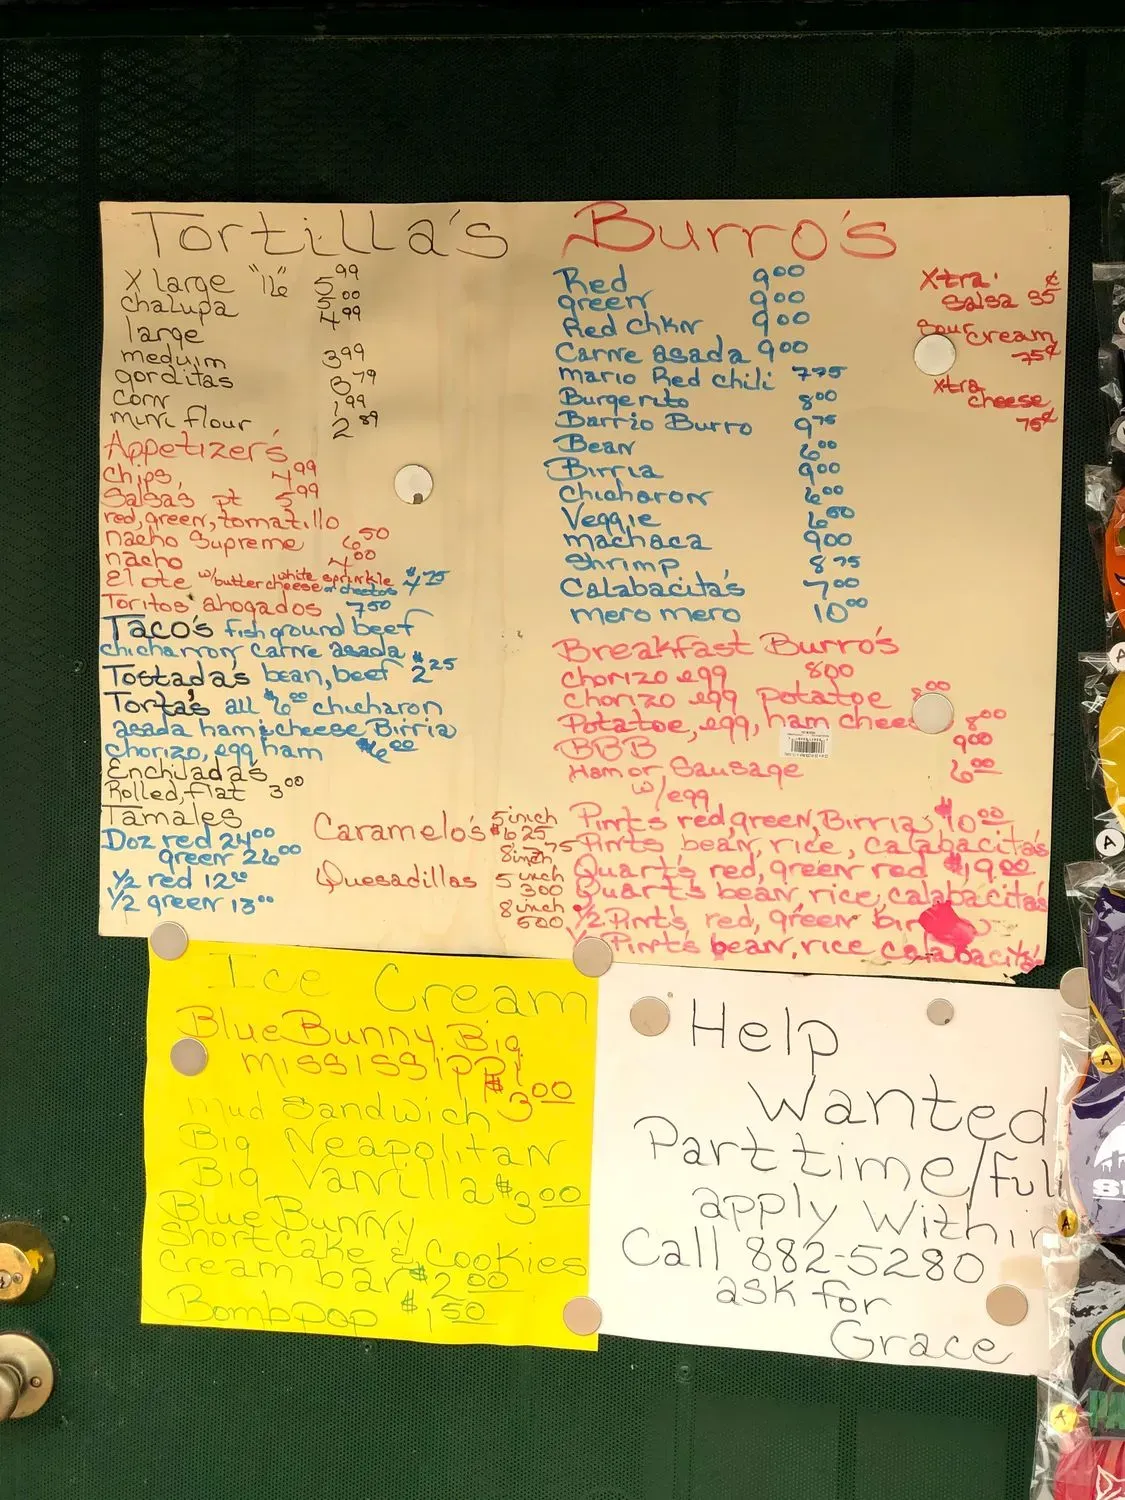 Tortilla's
X large "16" 5.99
chalupa 5.00
large 4.99
meduim 3.99
gorditas 3.79
corn 1.99
mini flour 2.89
Appetizer's
Chips, 4.99
Salsa's pt 5.99
red, green, tomatillo
nacho Supreme 6.50
nacho 4.00
Elote w/butter cheese white sprinkle or cheetos $4.75
Toritos ahogados 7.50
Taco's fish ground beef
chicharron, carne asada
Tostada's bean, beef $2.25
Torta's all $6.00 chicharon
asada ham & cheese Birria
chorizo, egg ham $6.00
Enchilada's
Rolled, flat 3.00
Tamales
Doz red 24.00
green 26.00
1/2 red 12.00
1/2 green 13.00
Caramelo's 5 inch
$6.25
8 inch 7.75
Quesadillas 5 inch
3.00
8 inch
5.00
Burro's
Red 9.00
green 9.00
Red chkn 9.00
Carne asada 9.00
mario Red chili 7.75
Burgerito 8.00
Barrio Burro 9.75
Bean 6.00
Birria 9.00
Chicharon 6.00
Veggie 6.50
machaca 9.00
Shrimp 8.75
Calabacita's 7.00
mero mero 10.00
Xtra
Salsa 35¢
Sour Cream
75¢
Xtra
cheese
75¢
Breakfast Burro's
Chorizo egg 8.00
Chorizo egg potatoe 8.00
Potatoe, egg, ham chees 8.00
BBB 9.00
Ham or Sausage 6.00
w/egg
Pint's red, green, Birria $10.00
Pints bean, rice, calabacita's
Quart's red, green red $19.00
Quart's bean, rice, calabacita's
1/2 Pint's, red, green
Pint's bean, rice calabacita's
Ice Cream
Blue Bunny Big
Mississippi
mud Sandwich $3.00
Big Neapolitan
Big Vanilla $3.00
Blue Bunny
Shortcake & Cookies
Cream bar $2.00
Bombpop $1.50
Help
Wanted
Part time/Ful
apply Within
Call 882-5280
ask for
Grace